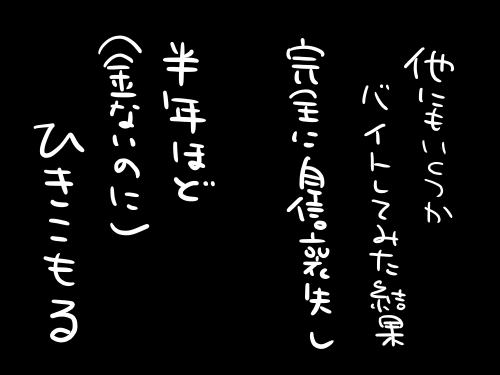 他にもいくつか
バイトしてみた結果
完全に自信喪失し
半年ほど
(金ないのに)
ひきこもる